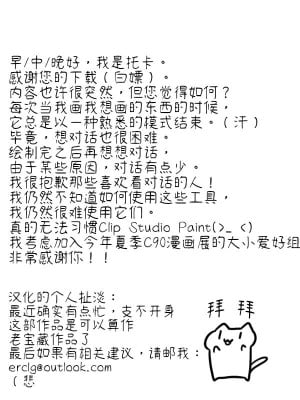 早/中/晚好，我是托卡。
感谢您的下载（白嫖）。
内容也许很突然，但您觉得如何？
每次当我画我想画的东西的时候，
它总是以一种熟悉的模式结束。（汗）
毕竟，想对话也很困难。
绘制完之后再想想对话，
由于某些原因，对话有点少。
我很抱歉那些喜欢看对话的人！
我仍然不知道如何使用这些工具，
我仍然很难使用它们。
真的无法习惯Clip Studio Paint(>_<)
我考虑加入今年夏季C90漫画展的大小爱好组
非常感谢你！！
汉化的个人扯淡：
最近确实有点忙，支不开身
这部作品是可以算作
老宝藏作品了
最后如果有相关建议，请邮我：
erclg@outlook.com
（悲
拜拜